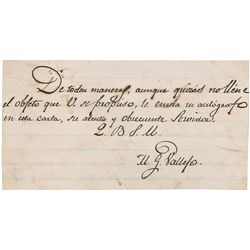 De todas maneras, aunque quizás no llene
el objeto que V. se propuso, le envia su autógrafo
en esta carta, su atento y obsecuente Servidor
Q. B. S. M.
M. G. Vallejo.